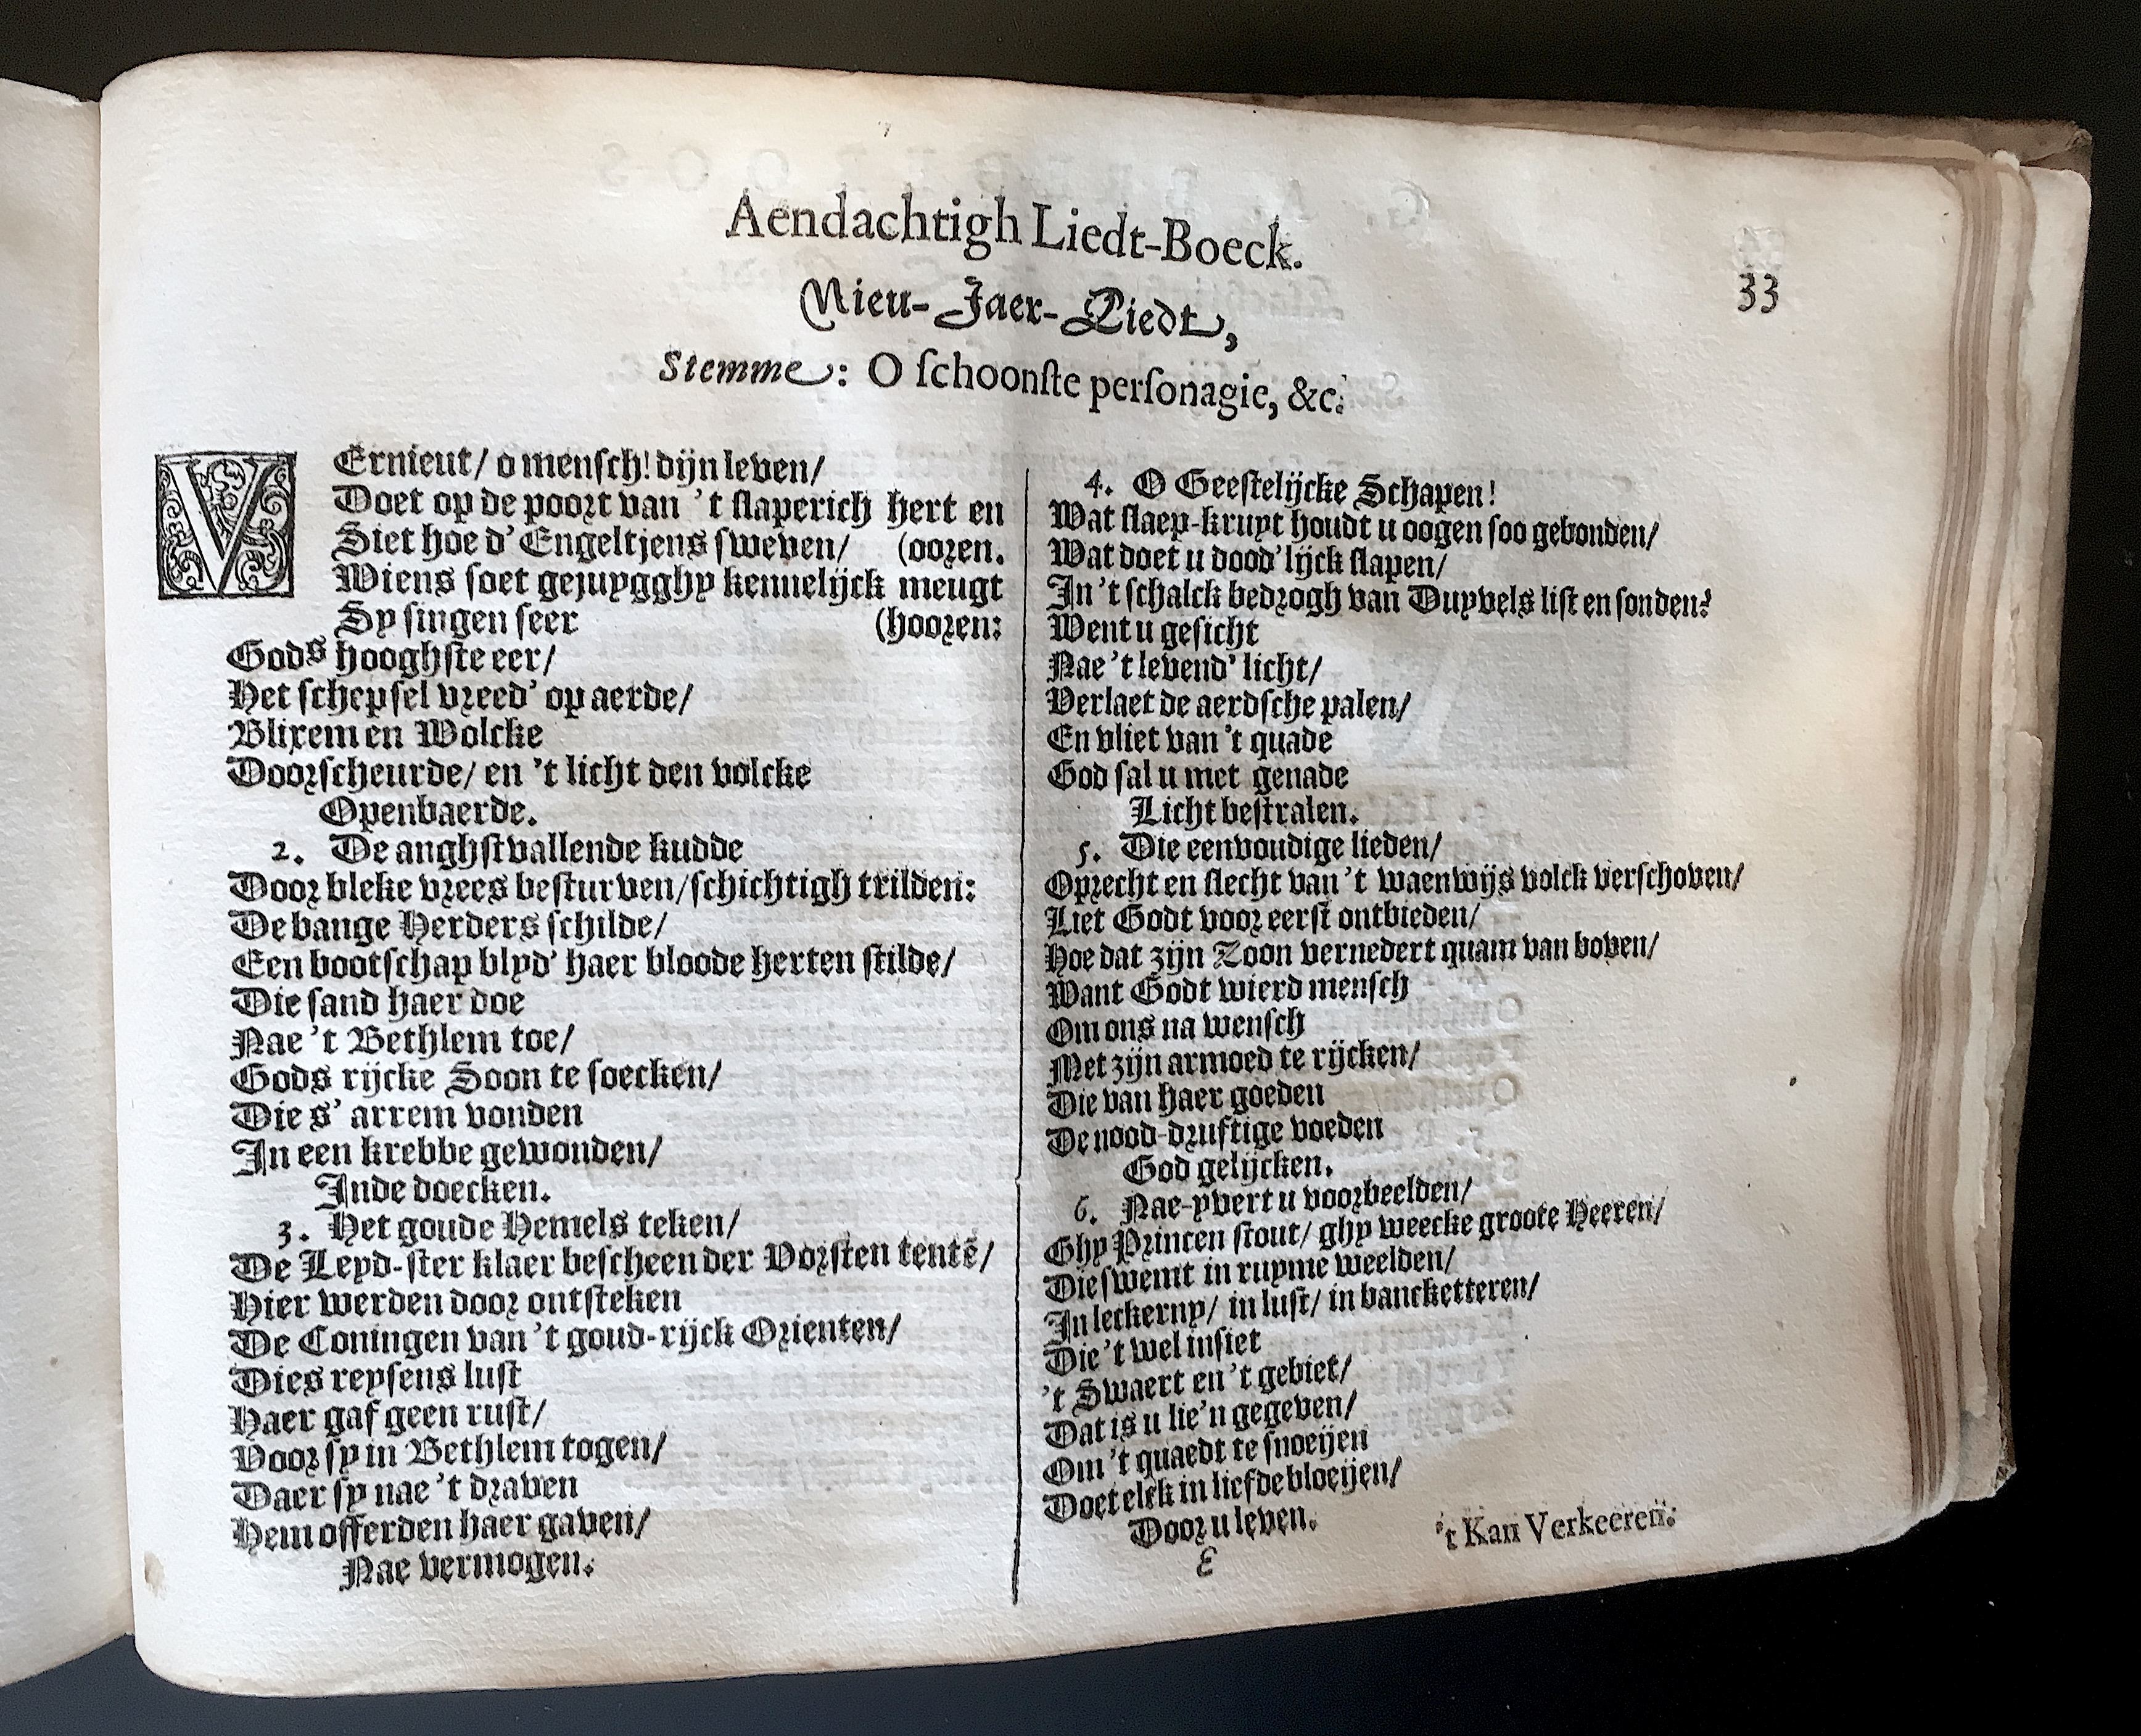 Aendachtigh Liedt-Boeck.
33
Nieu-Jaer-Liedt,
Stemme: O schoonste personagie, &c.
VErnieut/ o mensch! dijn leven/
Doet op de poort van 't slaperich hert en
Siet hoe d' Engeltjens sweven/ (ooren.
Wiens soet gejuygghy kennelijck meugt
Sy singen seer (hooren:
Gods hooghste eer/
Het schepsel vreed' op aerde/
Blixem en Wolcke
Doorscheurde/ en 't licht den volcke
Openbaerde.
2. De anghstvallende kudde
Door bleke vrees besturven/ schichtigh trilden:
De bange Herders schilde/
Een bootschap blyd' haer bloode herten stilde/
Die sand haer doe
Nae 't Bethlem toe/
Gods rijcke Soon te soecken/
Die s' arrem vonden
In een krebbe gewonden/
Inde doecken.
3. Het goude Hemels teken/
De Leyd-ster klaer bescheen der Vorsten tentē/
Hier werden door ontsteken
De Coningen van 't goud-rijck Orienten/
Dies reysens lust
Haer gaf geen rust/
Voor sy in Bethlem togen/
Daer sy nae 't draven
Hem offerden haer gaven/
Nae vermogen.
4. O Geestelijcke Schapen!
Wat slaep-kruyt houdt u oogen soo gebonden/
Wat doet u dood'lijck slapen/
In 't schalck bedrogh van Duyvels list en sonden?
Went u gesicht
Nae 't levend' licht/
Verlaet de aerdsche palen/
En vliet van 't quade
God sal u met genade
Licht bestralen.
5. Die eenvoudige lieden/
Oprecht en slecht van 't waenwijs volck verschoven/
Liet Godt voor eerst ontbieden/
Hoe dat zijn Zoon vernedert quam van boven/
Want Godt wierd mensch
Om ons na wensch
Met zijn armoed te rijcken/
Die van haer goeden
De nood-druftige voeden
God gelijcken.
6. Nae-yvert u voorbeelden/
Ghy Princen stout/ ghy weecke groote Heeren/
Die swemt in ruyme weelden/
In leckerny/ in lust/ in bancketteren/
Die 't wel insiet
't Swaert en 't gebiet/
Dat is u lie'n gegeven/
Om 't quaedt te snoeijen
Doet elck in liefde bloeijen/
Door u leven.
't Kan Verkeeren.
E